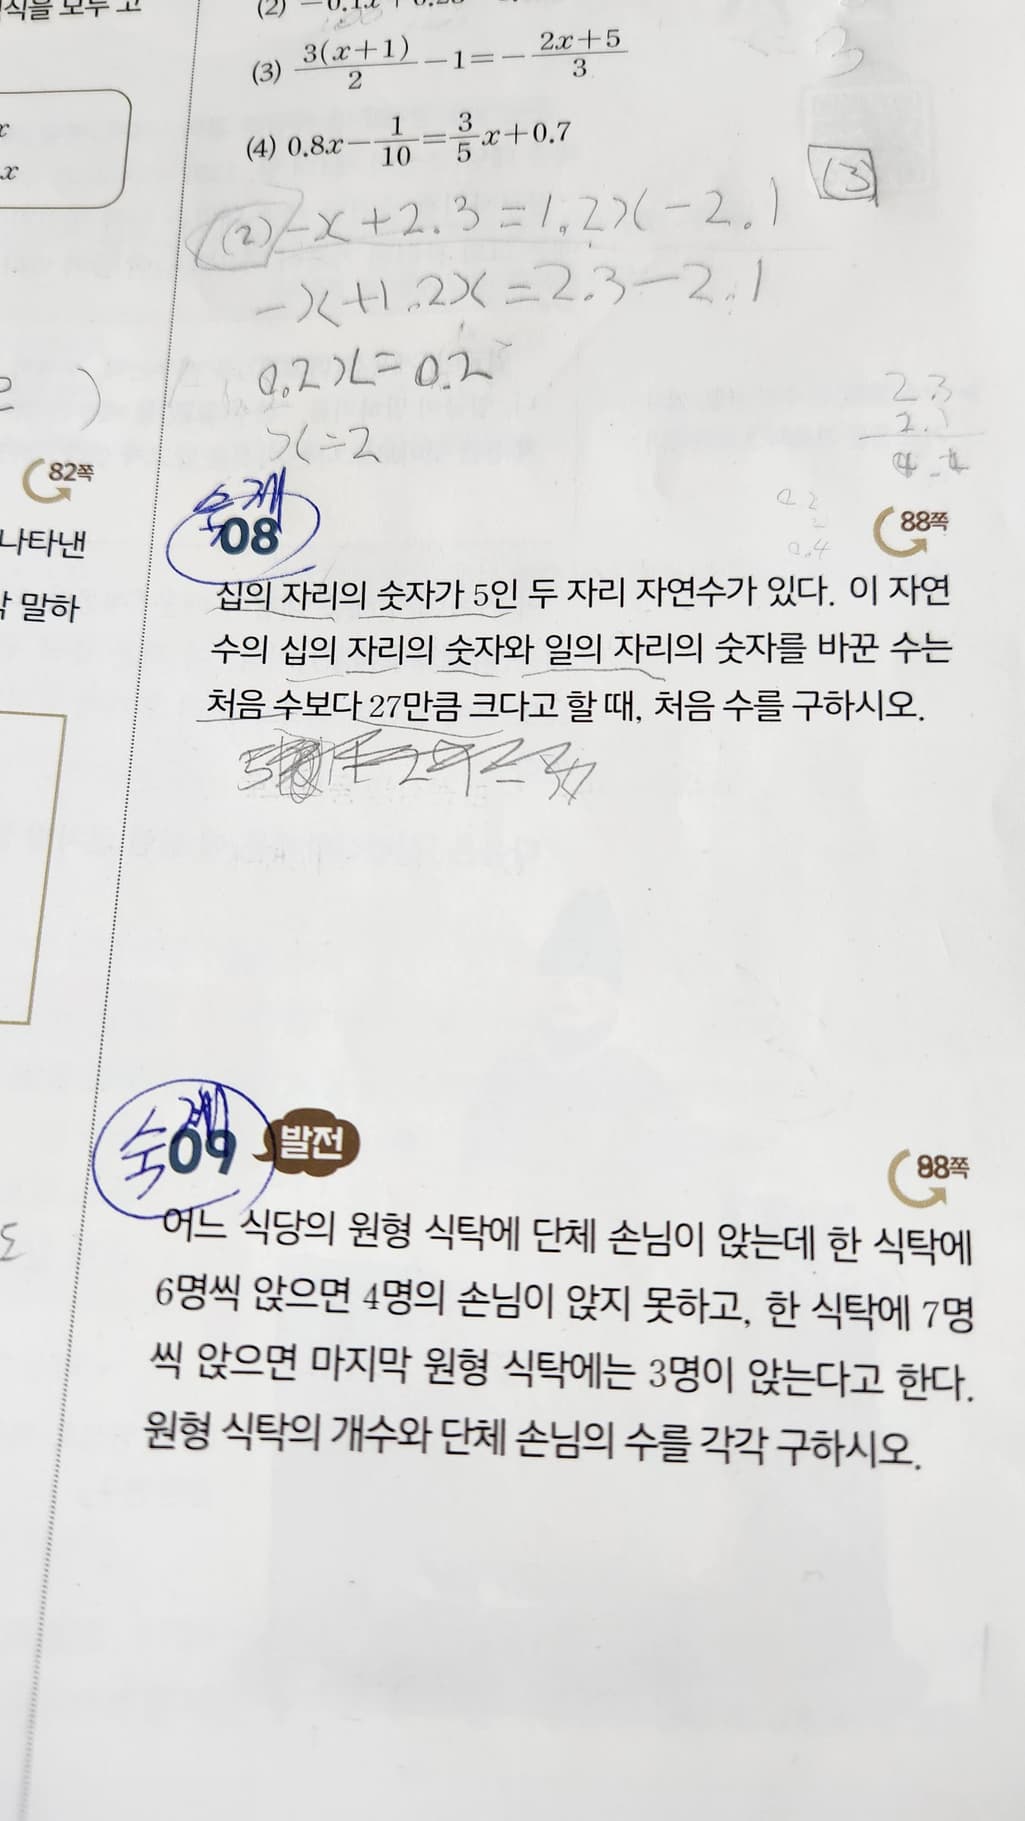 식을 모두 고
(2) -0.1x+0.23
(3) 3(x+1)/2 -1=- 2x+5/3
3
x
(4) 0.8x- 1/10 = 3/5 x+0.7
x
(3)
(2) -x+2.3=1.2x-2.1
-x+1.2x=2.3-2.1
)
0.2x=0.2
2.3
2.1
x=2
82쪽
숙제
08
0.2
2
0.4
88쪽
나타낸
말하
십의 자리의 숫자가 5인 두 자리 자연수가 있다. 이 자연
수의 십의 자리의 숫자와 일의 자리의 숫자를 바꾼 수는
처음 수보다 27만큼 크다고 할 때, 처음 수를 구하시오.
숙제
09 발전
88쪽
어느 식당의 원형 식탁에 단체 손님이 앉는데 한 식탁에
6명씩 앉으면 4명의 손님이 앉지 못하고, 한 식탁에 7명
씩 앉으면 마지막 원형 식탁에는 3명이 앉는다고 한다.
원형 식탁의 개수와 단체 손님의 수를 각각 구하시오.